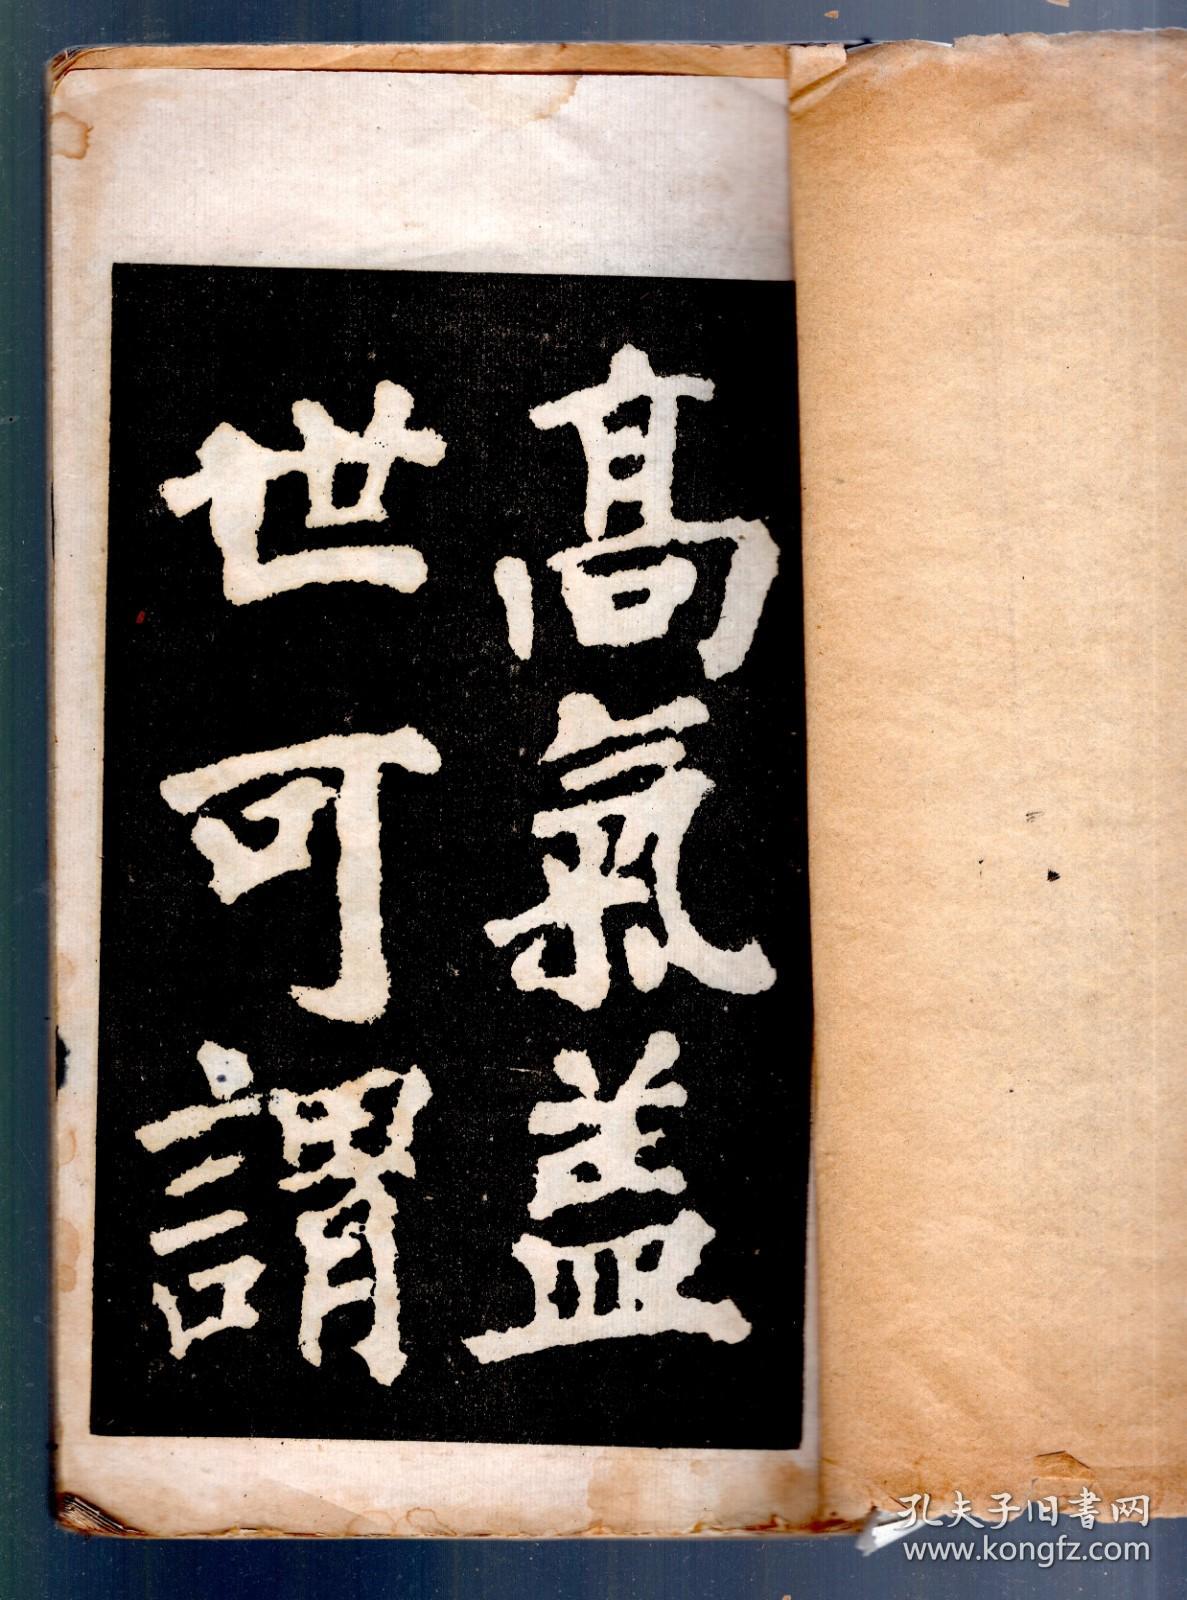 髙氣盖
世可謂
孔夫子旧書网
www.kongfz.com